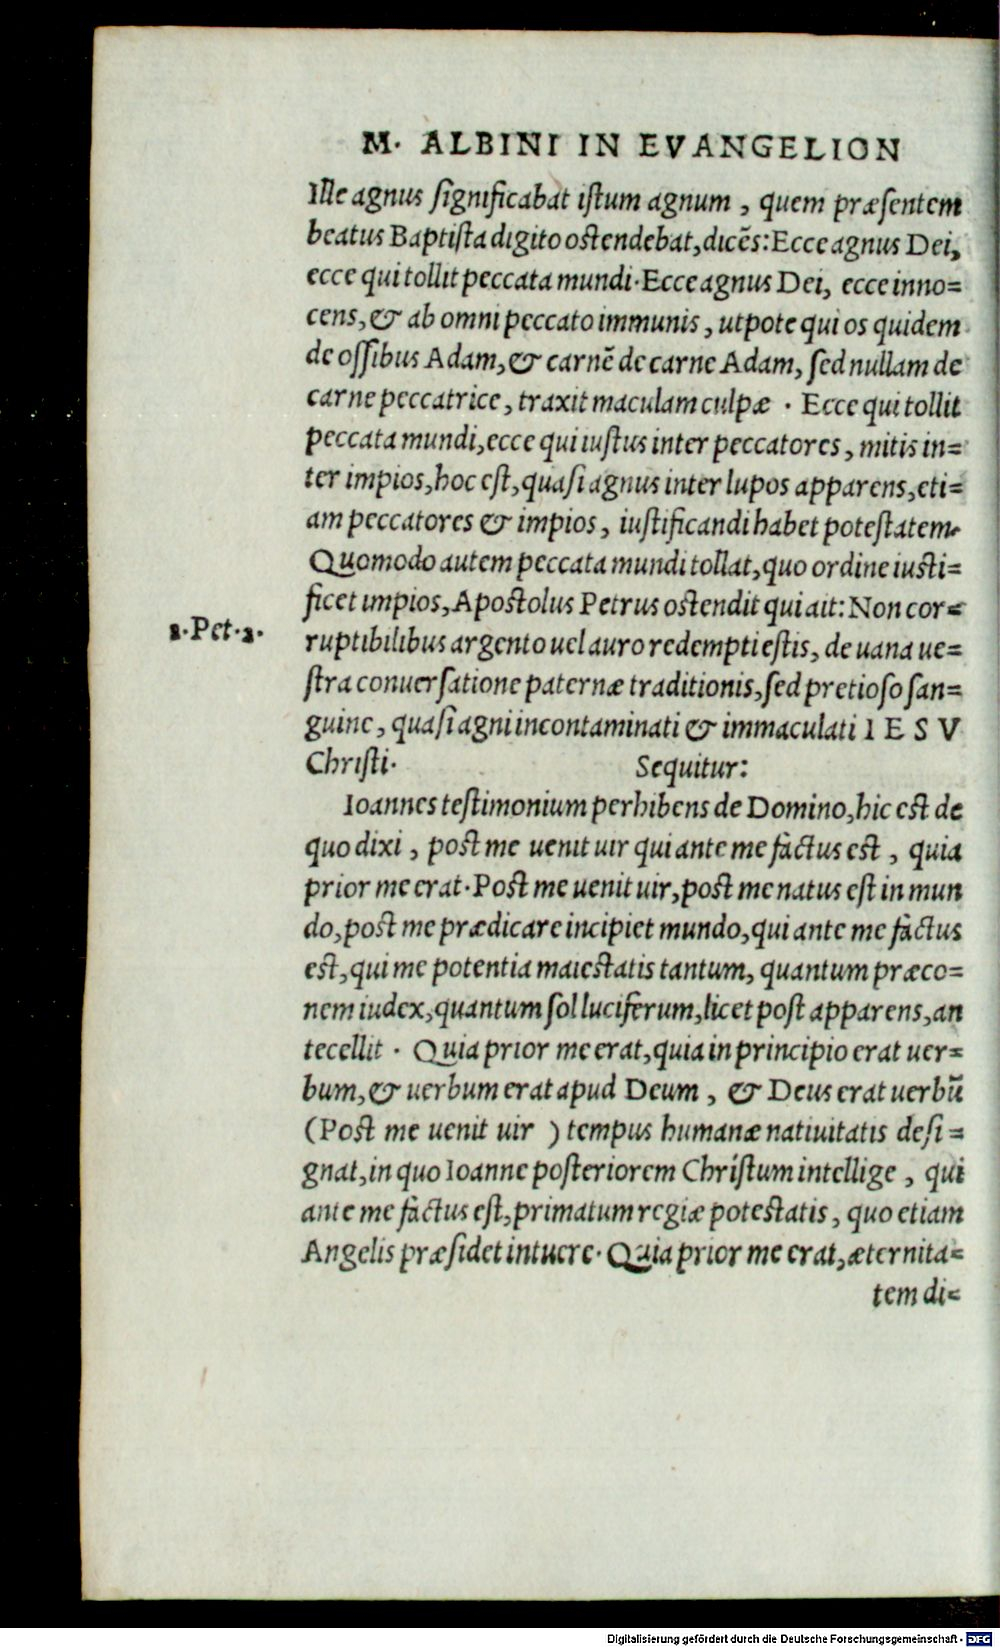 M. ALBINI IN EVANGELION
Ille agnus ſignificabat iſtum agnum , quem præſentem
beatus Baptiſta digito oſtendebat, dicẽs: Ecce agnus Dei,
ecce qui tollit peccata mundi. Ecce agnus Dei, ecce inno=
cens, & ab omni peccato immunis , utpote qui os quidem
de oſſibus Adam, & carnẽ de carne Adam, ſed nullam de
carne peccatrice , traxit maculam culpæ . Ecce qui tollit
peccata mundi, ecce qui iuſtus inter peccatores , mitis in=
ter impios, hoc eſt, quaſi agnus inter lupos apparens, eti=
am peccatores & impios , iuſtificandi habet poteſtatem.
Quomodo autem peccata mundi tollat, quo ordine iuſti=
ficet impios, Apoſtolus Petrus oſtendit qui ait: Non cor=
1. Pet. 1.
ruptibilibus argento uel auro redempti eſtis, de uana ue=
ſtra conuerſatione paternæ traditionis, ſed pretioſo ſan=
guine , quaſi agni incontaminati & immaculati I E S V
Chriſti. Sequitur:
Ioannes teſtimonium perhibens de Domino, hic eſt de
quo dixi , poſt me uenit uir qui ante me factus eſt , quia
prior me erat. Poſt me uenit uir, poſt me natus eſt in mun
do, poſt me prædicare incipiet mundo, qui ante me factus
eſt, qui me potentia maieſtatis tantum, quantum præco=
nem iudex, quantum ſol luciferum, licet poſt apparens, an
tecellit . Quia prior me erat, quia in principio erat uer=
bum, & uerbum erat apud Deum , & Deus erat uerbũ
(Poſt me uenit uir ) tempus humanæ natiuitatis deſi=
gnat, in quo Ioanne poſteriorem Chriſtum intellige , qui
ante me factus eſt, primatum regiæ poteſtatis , quo etiam
Angelis præſidet intuere. Quia prior me erat, æternita=
tem di=
Digitalisierung gefördert durch die Deutsche Forschungsgemeinschaft - DFG